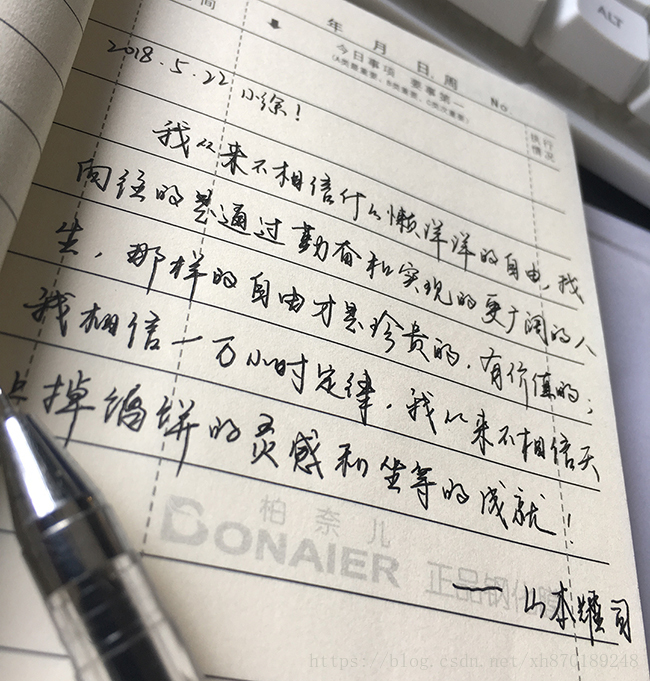 ALT
间
年 月 日 周 No.
今日事项 要事第一
执行
情况
2018.5.22 小徐!
我从来不相信什么懒洋洋的自由,我
向往的是通过勤奋和实现的更广阔的人
生,那样的自由才是珍贵的,有价值的;
我相信一万小时定律,我从来不相信天
上掉馅饼的灵感和坐等的成就!
柏奈儿
BONAIER 正品钢化膜
—— 山本耀司
https://blog.csdn.net/xh870189248